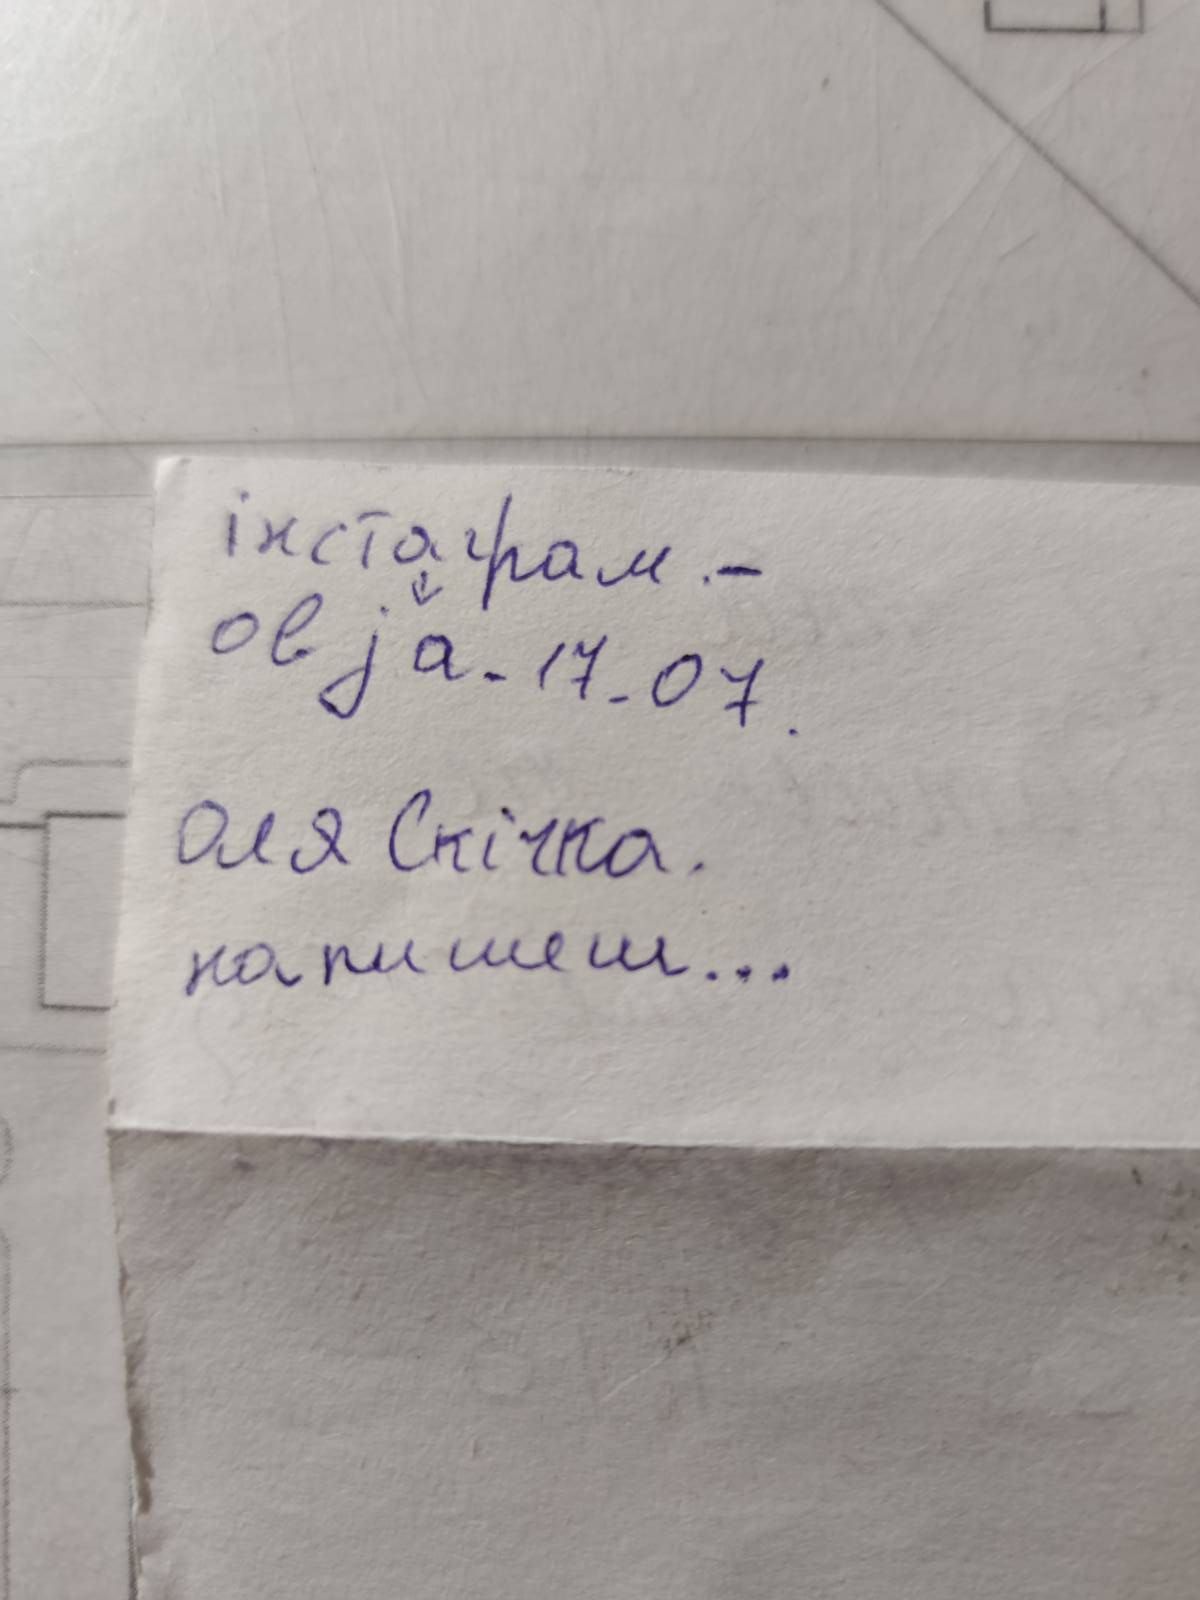 інстаграм.-
ovja-17-07.
Оля Скічка.
напишеш...